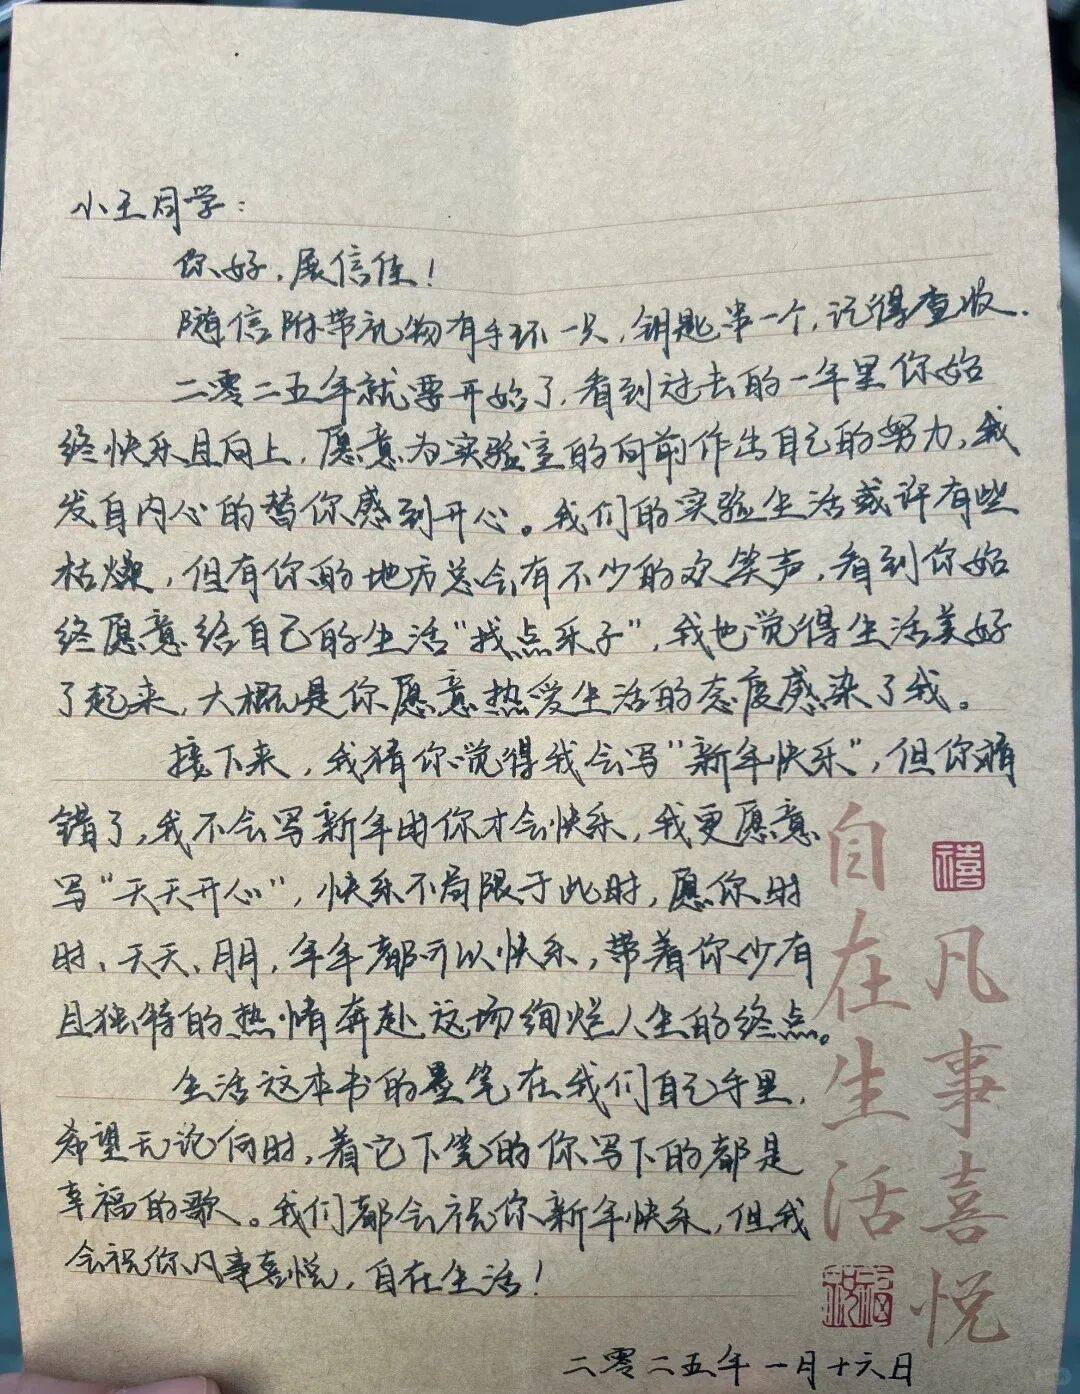 小王同学：
你好，展信佳！
随信附带礼物有手环一只，钥匙串一个，记得查收.
二零二五年就要开始了，看到过去的一年里你始
终快乐且向上，愿意为实验室的向前作出自己的努力，我
发自内心的替你感到开心。我们的实验生活或许有些
枯燥，但有你的地方总会有不少的欢笑声，看到你始
终愿意给自己的生活“找点乐子”，我也觉得生活美好
了起来，大概是你愿意热爱生活的态度感染了我。
接下来，我猜你觉得我会写“新年快乐”，但你猜
错了，我不会写新年由你才会快乐，我更愿意
写“天天开心”，快乐不局限于此时，愿你时
时、天天、月月，年年都可以快乐，带着你少有
且独特的热情奔赴这场绚烂人生的终点。
生活这本书的墨笔在我们自己手里，
希望无论何时，着它下笔的你写下的都是
幸福的歌。我们都会祝你新年快乐，但我
会祝你凡事喜悦，自在生活！
二零二五年一月十六日
禧
凡事喜悦
自在生活